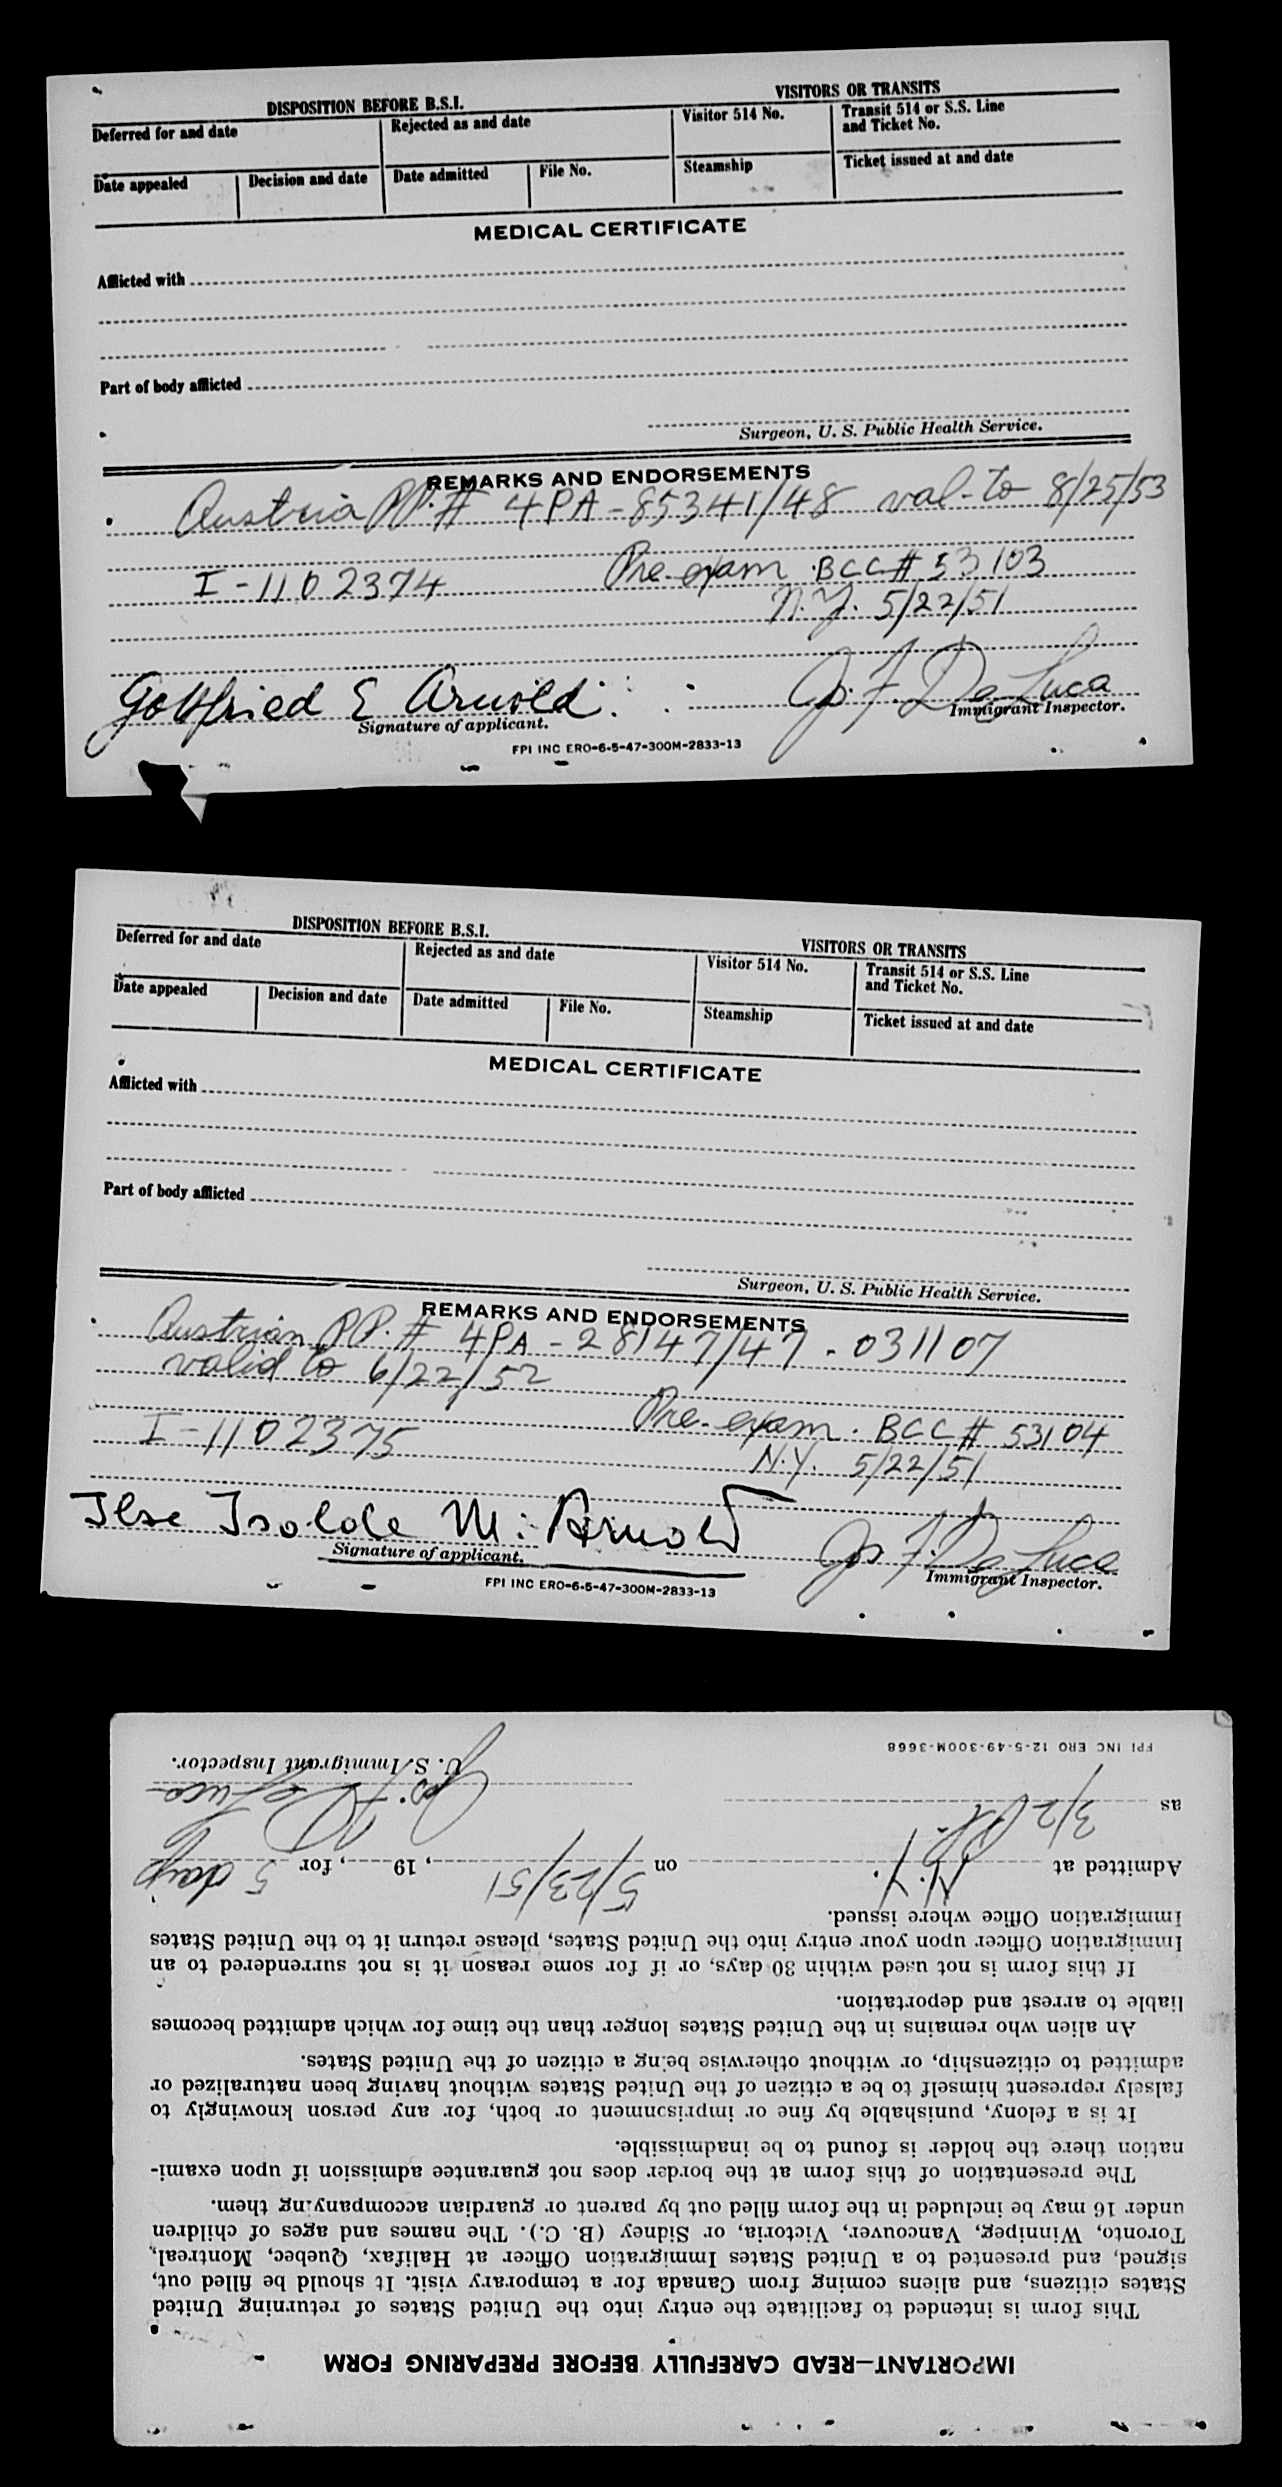 DISPOSITION BEFORE B.S.I.
VISITORS OR TRANSITS
Deferred for and date
Rejected as and date
Visitor 514 No.
Transit 514 or S.S. Line
and Ticket No.
Date appealed
Decision and date
Date admitted
File No.
Steamship
Ticket issued at and date
MEDICAL CERTIFICATE
Afflicted with
Part of body afflicted
Surgeon, U. S. Public Health Service.
REMARKS AND ENDORSEMENTS
Austria PP. # 4PA-85341/48 val-to 8/25/53
I-1102374 Pre-exam BCC# 53103
N.Y. 5/22/51
Gottfried E Arnold
Jos. F. De Luca
Signature of applicant.
Immigrant Inspector.
FPI INC ERO-6-5-47-300M-2833-13
DISPOSITION BEFORE B.S.I.
VISITORS OR TRANSITS
Deferred for and date
Rejected as and date
Visitor 514 No.
Transit 514 or S.S. Line
and Ticket No.
Date appealed
Decision and date
Date admitted
File No.
Steamship
Ticket issued at and date
MEDICAL CERTIFICATE
Afflicted with
Part of body afflicted
Surgeon, U. S. Public Health Service.
REMARKS AND ENDORSEMENTS
Austrian PP. # 4PA-28147/47 - 031107
valid to 6/22/52
I-1102375 Pre-exam. BCC# 53104
N.Y. 5/22/51
Ilse Isolde M. Arnold
Jos F. De Luca
Signature of applicant.
Immigrant Inspector.
FPI INC ERO-6-5-47-300M-2833-13
IMPORTANT—READ CAREFULLY BEFORE PREPARING FORM
This form is intended to facilitate the entry into the United States of returning United
States citizens, and aliens coming from Canada for a temporary visit. It should be filled out,
signed, and presented to a United States Immigration Officer at Halifax, Quebec, Montreal,
Toronto, Winnipeg, Vancouver, Victoria, or Sidney (B. C.). The names and ages of children
under 16 may be included in the form filled out by parent or guardian accompanying them.
The presentation of this form at the border does not guarantee admission if upon exami-
nation there the holder is found to be inadmissible.
It is a felony, punishable by fine or imprisonment or both, for any person knowingly to
falsely represent himself to be a citizen of the United States without having been naturalized or
admitted to citizenship, or without otherwise being a citizen of the United States.
An alien who remains in the United States longer than the time for which admitted becomes
liable to arrest and deportation.
If this form is not used within 30 days, or if for some reason it is not surrendered to an
Immigration Officer upon your entry into the United States, please return it to the United States
Immigration Office where issued.
Admitted at N.Y. on 5/23/51, 19, for 5 days
as 3/2
Jos. F. De Luca
U. S. Immigrant Inspector.
FPI INC ERO 12-5-49-300M-3668